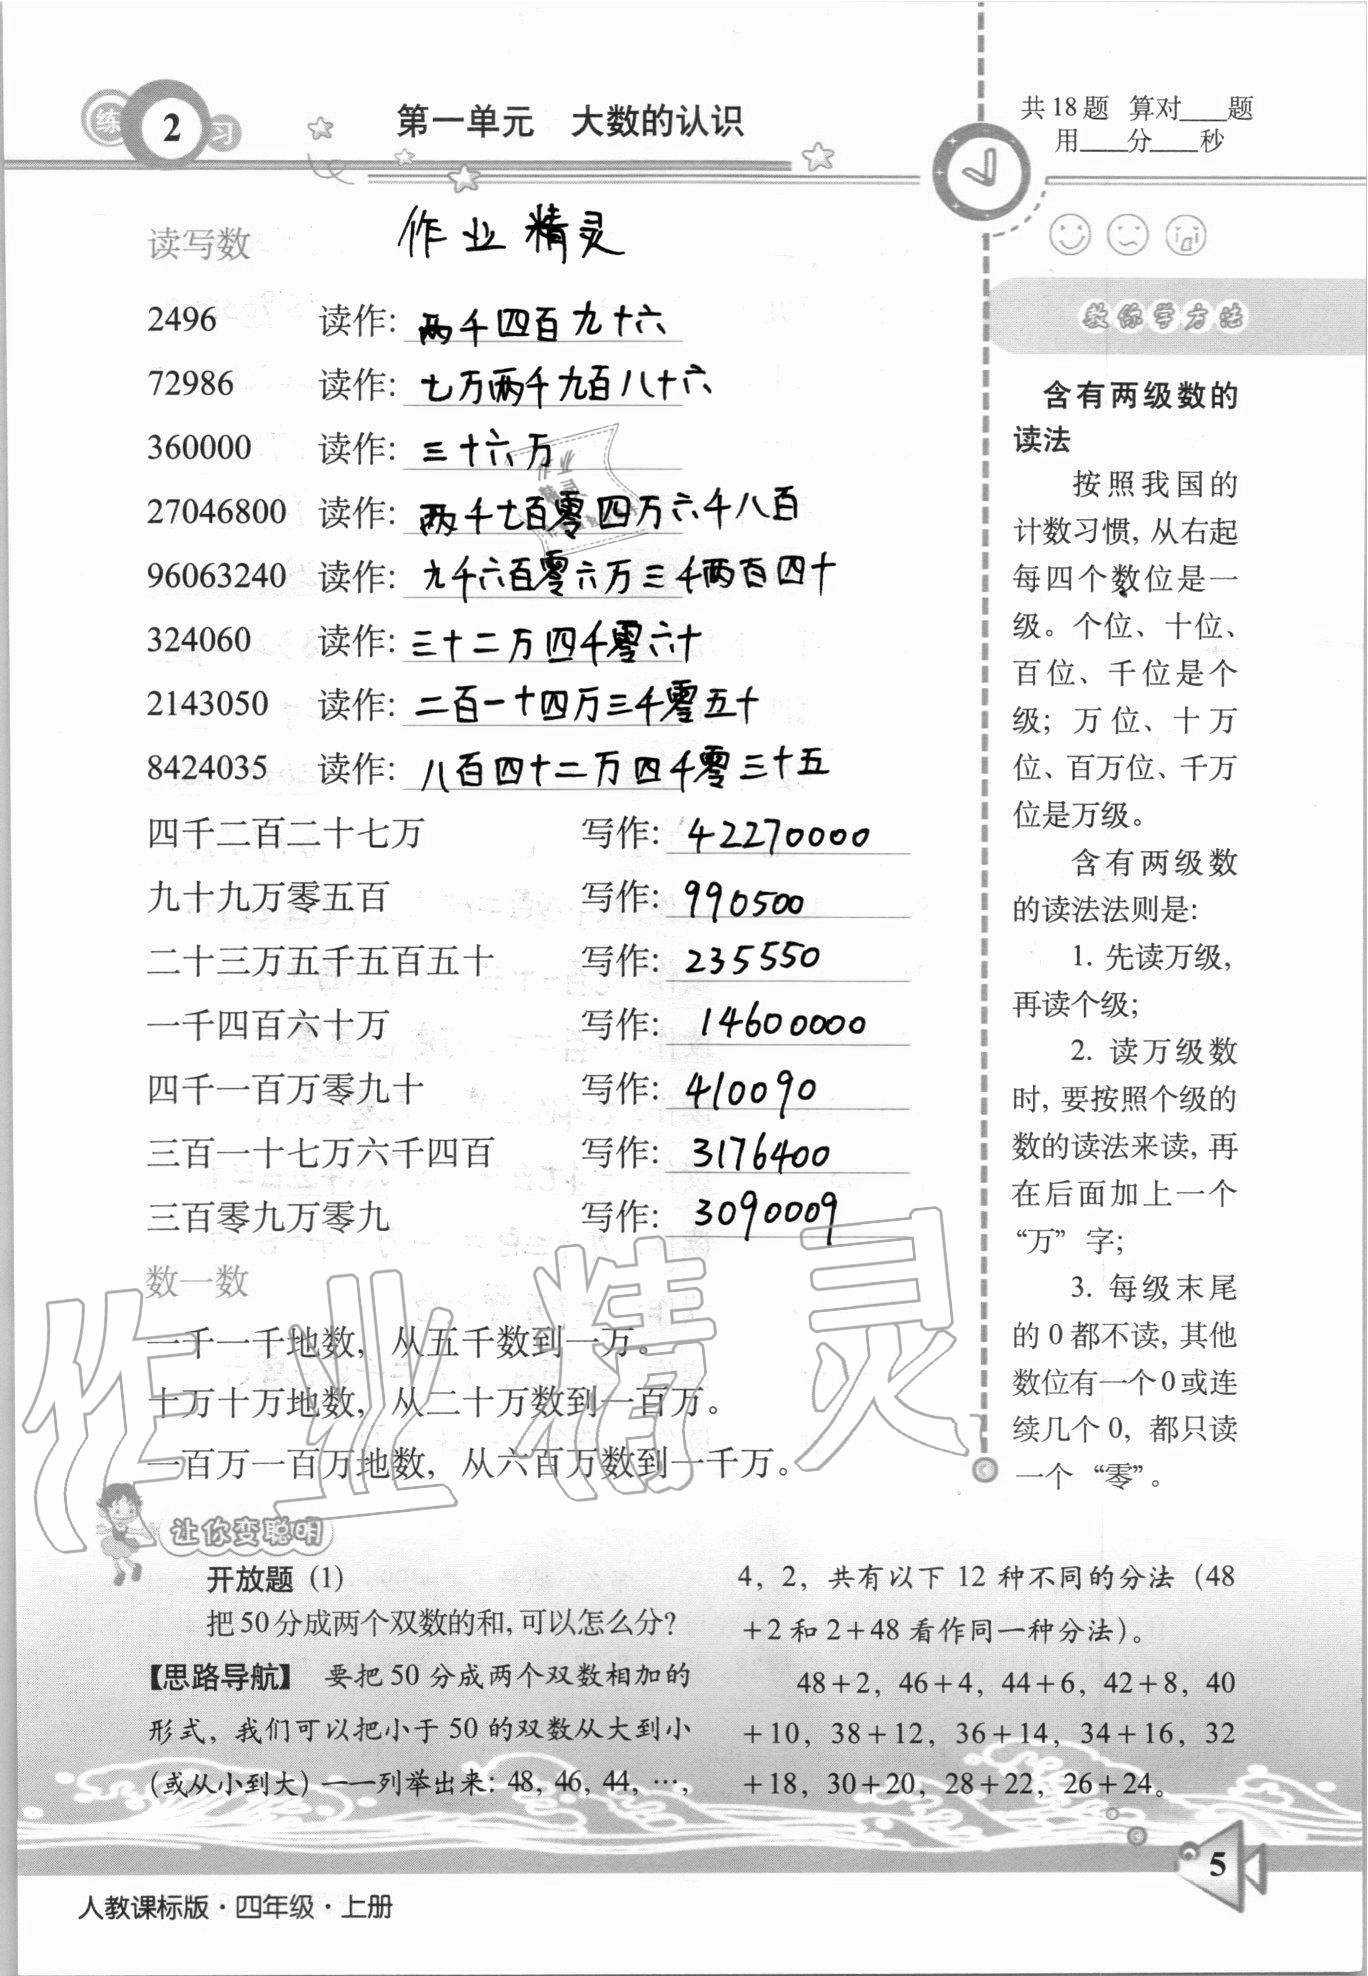 练 2 习
第一单元 大数的认识
共18题 算对____题
用____分____秒
读写数
作业精灵
2496 读作: 两千四百九十六
72986 读作: 七万两千九百八十六
360000 读作: 三十六万
27046800 读作: 两千七百零四万六千八百
96063240 读作: 九千六百零六万三千两百四十
324060 读作: 三十二万四千零六十
2143050 读作: 二百一十四万三千零五十
8424035 读作: 八百四十二万四千零三十五
四千二百二十七万 写作: 42270000
九十九万零五百 写作: 990500
二十三万五千五百五十 写作: 235550
一千四百六十万 写作: 14600000
四千一百万零九十 写作: 410090
三百一十七万六千四百 写作: 3176400
三百零九万零九 写作: 3090009
数一数
一千一千地数，从五千数到一万。
十万十万地数，从二十万数到一百万。
一百万一百万地数，从六百万数到一千万。
作业精灵
作业
精灵
教你学方法
含有两级数的
读法
按照我国的
计数习惯, 从右起
每四个数位是一
级。个位、十位、
百位、千位是个
级; 万位、十万
位、百万位、千万
位是万级。
含有两级数
的读法法则是:
1. 先读万级,
再读个级;
2. 读万级数
时, 要按照个级的
数的读法来读, 再
在后面加上一个
“万”字;
3. 每级末尾
的0都不读, 其他
数位有一个0或连
续几个0, 都只读
一个“零”。
让你变聪明
开放题 (1)
把50分成两个双数的和, 可以怎么分?
【思路导航】 要把50分成两个双数相加的
形式，我们可以把小于50的双数从大到小
(或从小到大) 一一列举出来: 48, 46, 44, …,
4, 2, 共有以下12种不同的分法 (48
+2和2+48看作同一种分法)。
48+2, 46+4, 44+6, 42+8, 40
+10, 38+12, 36+14, 34+16, 32
+18, 30+20, 28+22, 26+24。
5
人教课标版·四年级·上册